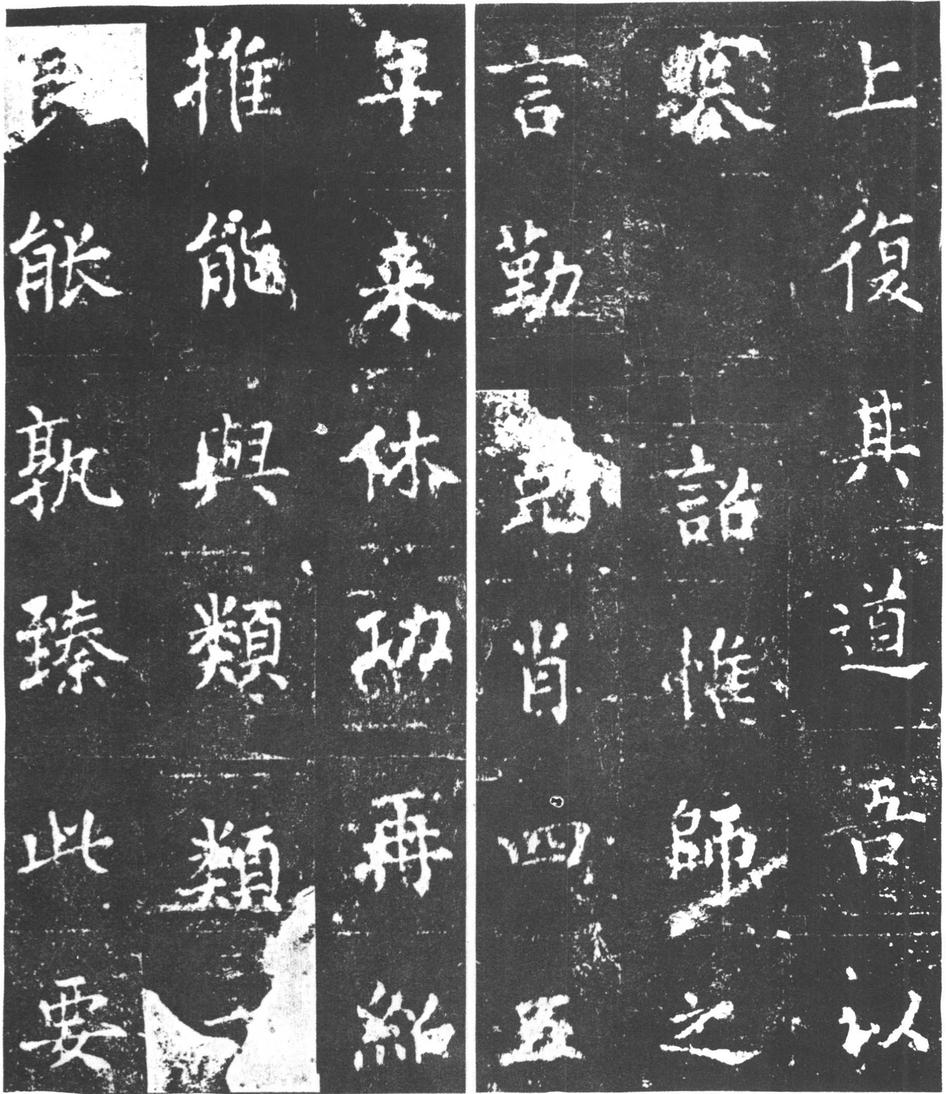 上復其道吾以
塞詔惟師之
言勤 肖四五
年来休功再紹
推能與類類
能孰臻此要